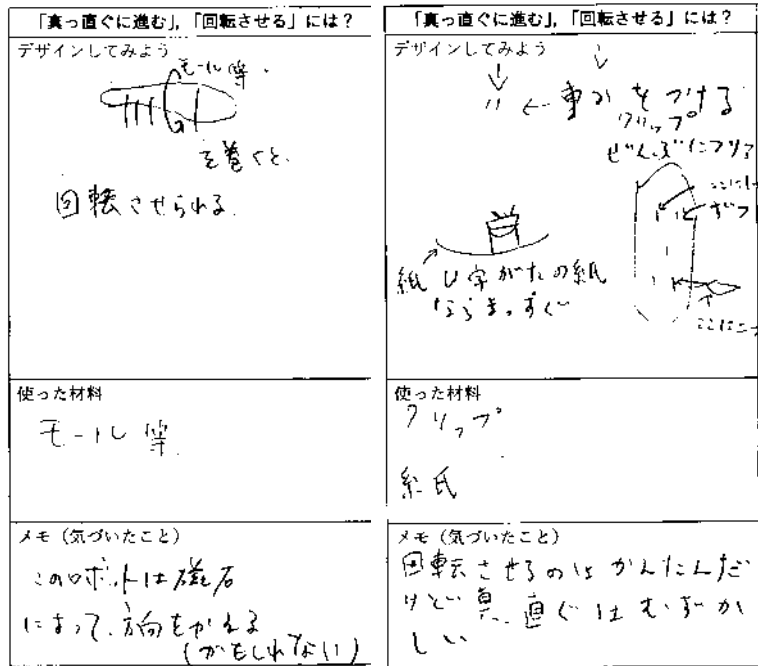 「真っ直ぐに進む」,「回転させる」には？
デザインしてみよう
モール等.
を巻くと.
回転させられる.
使った材料
モール等.
メモ（気づいたこと）
このロボットは磁石
によって、方向をかえる
(かもしれない)
「真っ直ぐに進む」,「回転させる」には？
デザインしてみよう
← 車から をつける
クリップ
ぜんぶにクリア
紙 U字がたの紙
ならまっすぐ
使った材料
クリップ
紙
メモ（気づいたこと）
回転させるのはかんたんだ
けど真っ直ぐはむずか
しい